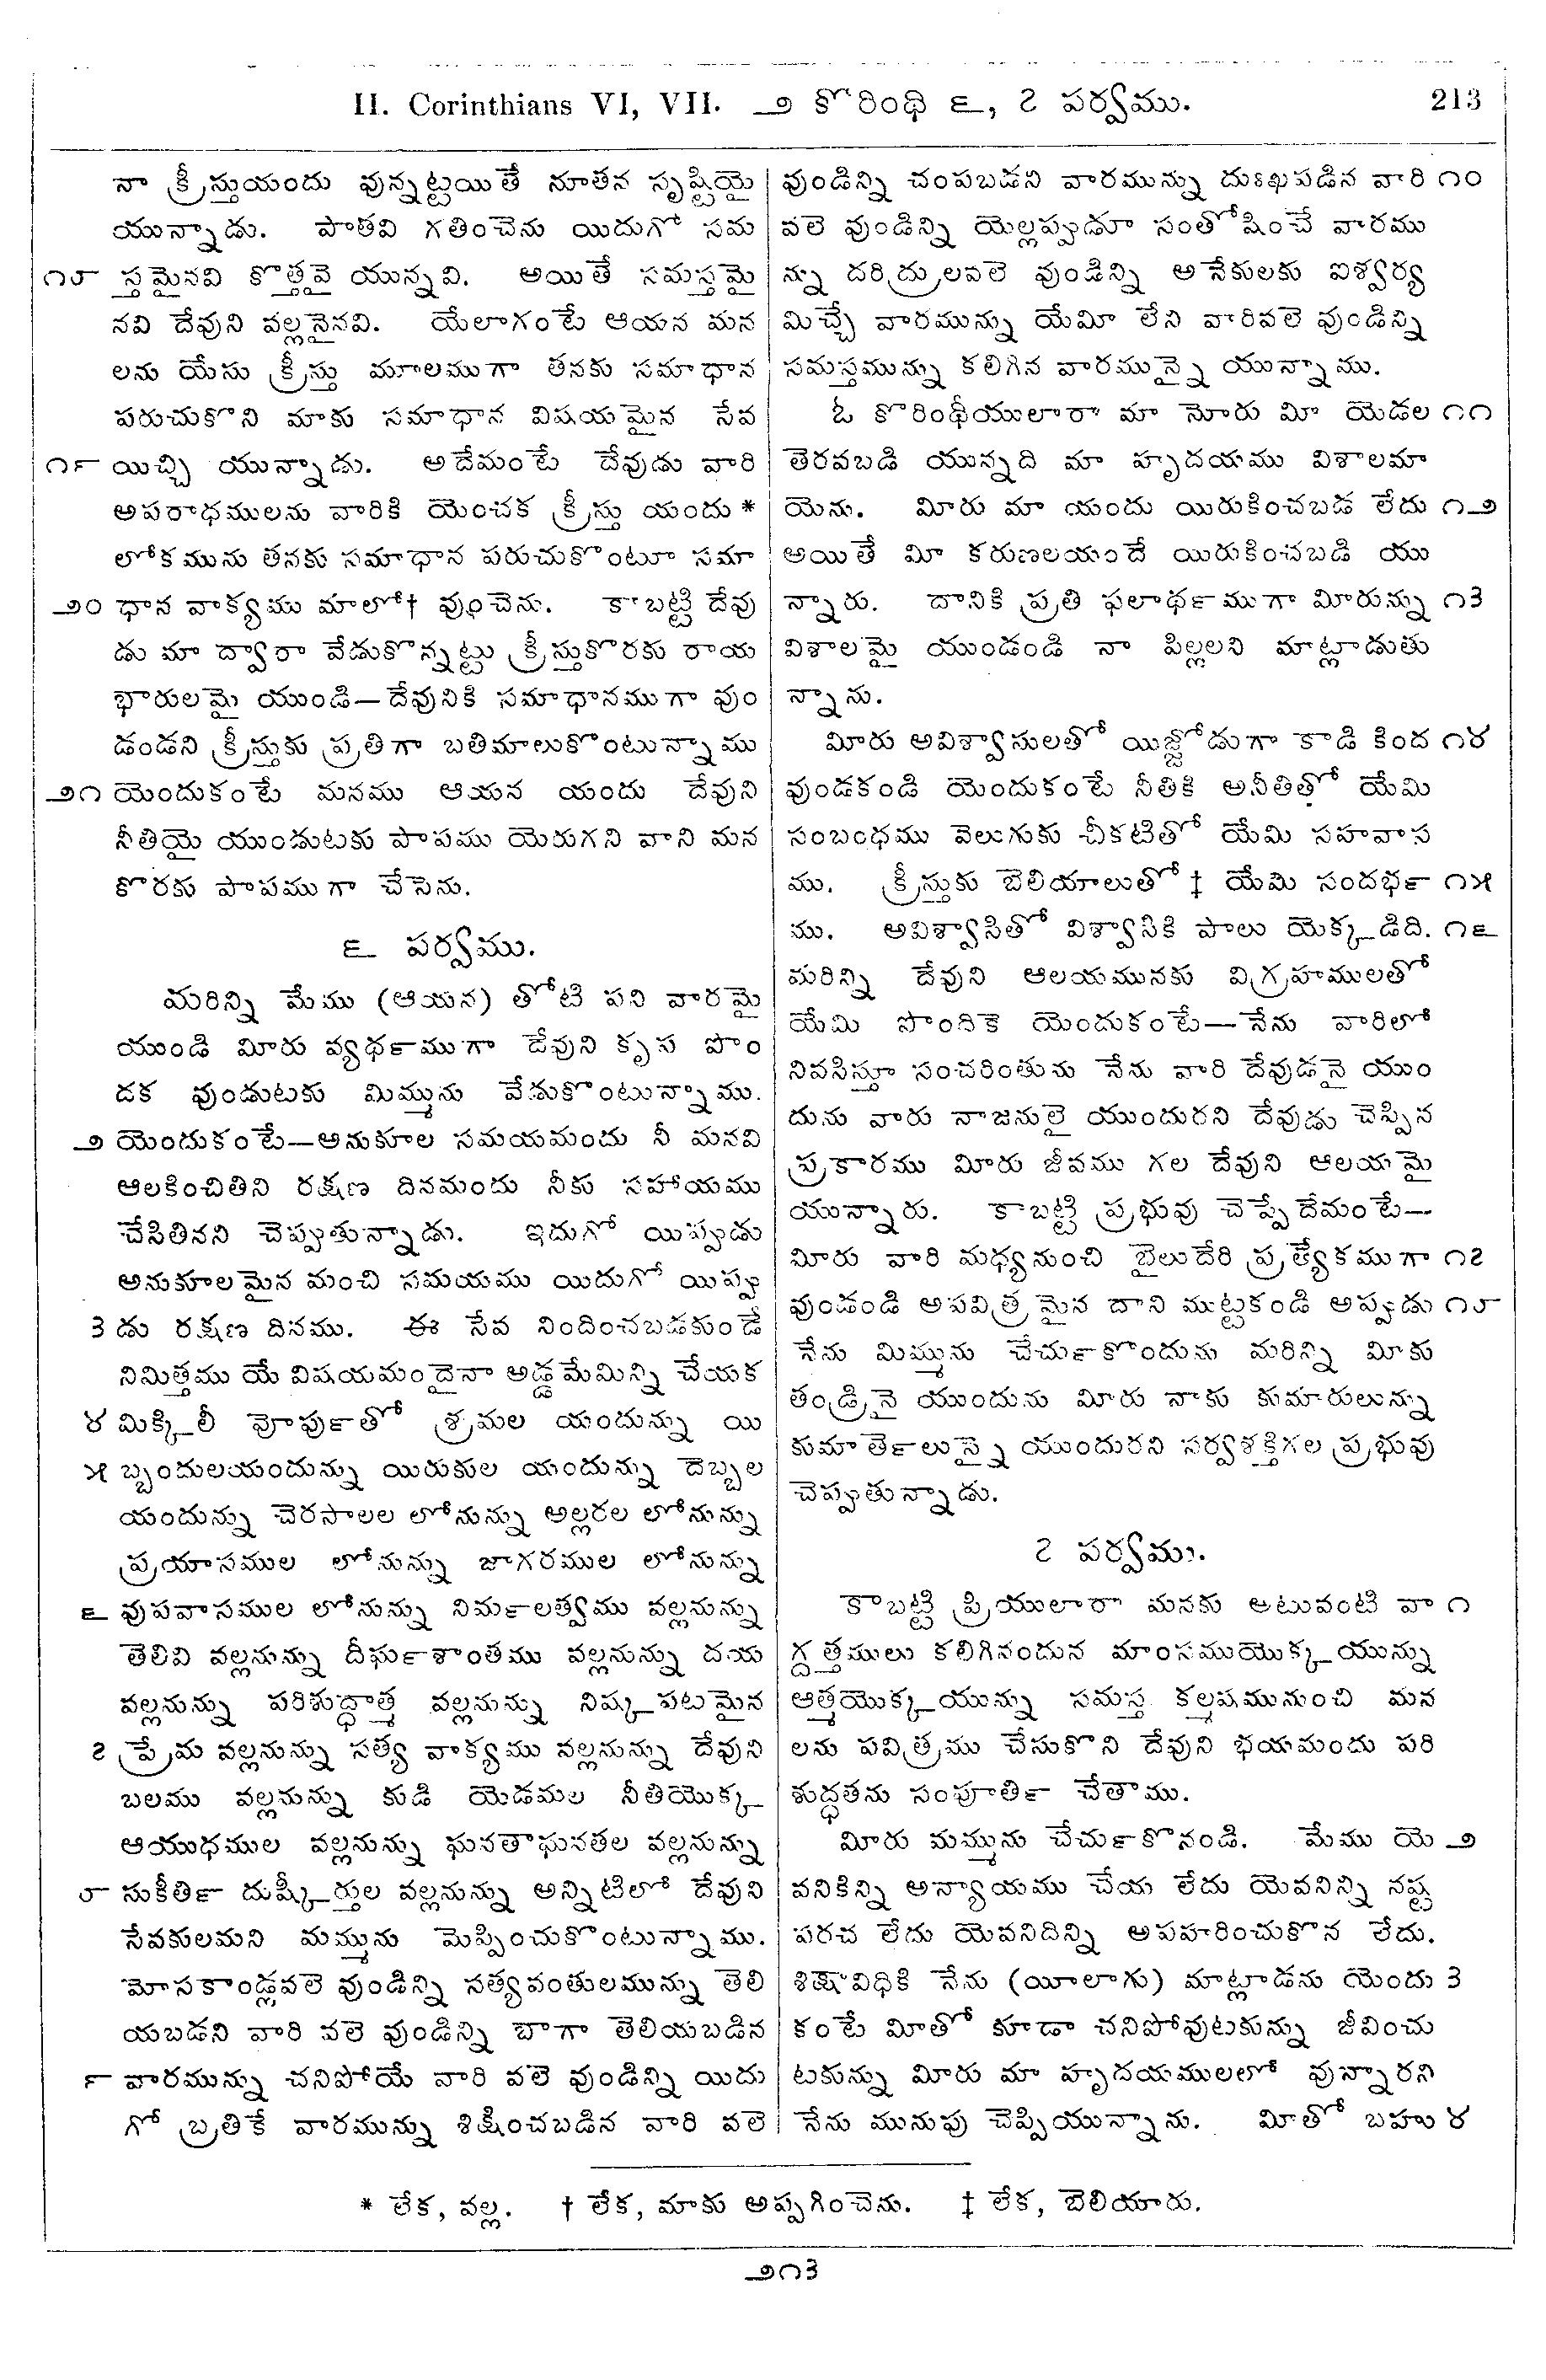 II. Corinthians VI, VII. ౨ కొరింథి ౬, ౭ పర్వము. 213
నా క్రీస్తుయందు వున్నట్టయితే నూతన సృష్టియై
యున్నాడు. పాతవి గతించెను యిదుగో సమ
౧౮ స్తమైనవి కొత్తవై యున్నవి. అయితే సమస్తమై
నవి దేవుని వల్లనైనవి. యేలాగంటే ఆయన మన
లను యేసు క్రీస్తు మూలముగా తనకు సమాధాన
పరుచుకొని మాకు సమాధాన విషయమైన సేవ
౧౯ యిచ్చి యున్నాడు. అదేమంటే దేవుడు వారి
అపరాధములను వారికి యెంచక క్రీస్తు యందు *
లోకమును తనకు సమాధాన పరుచుకొంటూ సమా
౨౦ ధాన వాక్యము మాలో† వుంచెను. కాబట్టి దేవు
డు మా ద్వారా వేడుకొన్నట్టు క్రీస్తుకొరకు రాయ
భారులమై యుండి—దేవునికి సమాధానముగా వుం
డండని క్రీస్తుకు ప్రతిగా బతిమాలుకొంటున్నాము
౨౧ యెందుకంటే మనము ఆయన యందు దేవుని
నీతియై యుండుటకు పాపము యెరుగని వాని మన
కొరకు పాపముగా చేసెను.
౬ పర్వము.
మరిన్ని మేము (ఆయన) తోటి పని వారమై
యుండి మీరు వ్యర్థముగా దేవుని కృప పొం
దక వుండుటకు మిమ్మును వేడుకొంటున్నాము.
౨ యెందుకంటే—అనుకూల సమయమందు నీ మనవి
ఆలకించితిని రక్షణ దినమందు నీకు సహాయము
చేసితినని చెప్పుతున్నాడు. ఇదుగో యిప్పుడు
అనుకూలమైన మంచి సమయము యిదుగో యిప్పు
౩ డు రక్షణ దినము. ఈ సేవ నిందించబడకుండే
నిమిత్తము యే విషయమందైనా అడ్డమేమిన్ని చేయక
౪ మిక్కిలీ వోర్పుతో శ్రమల యందున్ను యి
౫ బ్బందులయందున్ను యిరుకుల యందున్ను దెబ్బల
యందున్ను చెరసాలల లోనున్ను అల్లరల లోనున్ను
ప్రయాసముల లోనున్ను జాగరముల లోనున్ను
౬ వుపవాసముల లోనున్ను నిర్మలత్వము వల్లనున్ను
తెలివి వల్లనున్ను దీర్ఘశాంతము వల్లనున్ను దయ
వల్లనున్ను పరిశుద్ధాత్మ వల్లనున్ను నిష్కపటమైన
౭ ప్రేమ వల్లనున్ను సత్య వాక్యము వల్లనున్ను దేవుని
బలము వల్లనున్ను కుడి యెడమల నీతియొక్క
ఆయుధముల వల్లనున్ను ఘనతాఘనతల వల్లనున్ను
౮ సుకీర్తి దుష్కీర్తుల వల్లనున్ను అన్నిటిలో దేవుని
సేవకులమని మమ్మును మెప్పించుకొంటున్నాము.
మోసకాండ్లవలె వుండిన్ని సత్యవంతులమున్ను తెలి
యబడని వారి వలె వుండిన్ని బాగా తెలియబడిన
౯ వారమున్ను చనిపోయే వారి వలె వుండిన్ని యిదు
గో బ్రతికే వారమున్ను శిక్షించబడిన వారి వలె
వుండిన్ని చంపబడని వారమున్ను దుఃఖపడిన వారి ౧౦
వలె వుండిన్ని యెల్లప్పుడూ సంతోషించే వారము
న్ను దరిద్రులవలె వుండిన్ని అనేకులకు ఐశ్వర్య
మిచ్చే వారమున్ను యేమీ లేని వారివలె వుండిన్ని
సమస్తమున్ను కలిగిన వారమున్నై యున్నాము.
ఓ కొరింథీయులారా మా నోరు మీ యెడల ౧౧
తెరవబడి యున్నది మా హృదయము విశాలమా
యెను. మీరు మా యందు యిరుకించబడ లేదు ౧౨
అయితే మీ కరుణలయందే యిరుకించబడి యు
న్నారు. దానికి ప్రతి ఫలార్థముగా మీరున్ను ౧౩
విశాలమై యుండండి నా పిల్లలని మాట్లాడుతు
న్నాను.
మీరు అవిశ్వాసులతో యిజ్జోడుగా కాడి కింద ౧౪
వుండకండి యెందుకంటే నీతికి అనీతితో యేమి
సంబంధము వెలుగుకు చీకటితో యేమి సహవాస
ము. క్రీస్తుకు బెలియాలుతో ‡ యేమి సందర్భ ౧౫
ము. అవిశ్వాసితో విశ్వాసికి పాలు యెక్కడిది. ౧౬
మరిన్ని దేవుని ఆలయమునకు విగ్రహములతో
యేమి పొందికె యెందుకంటే—నేను వారిలో
నివసిస్తూ సంచరింతును నేను వారి దేవుడనై యుం
దును వారు నాజనులై యుందురని దేవుడు చెప్పిన
ప్రకారము మీరు జీవము గల దేవుని ఆలయమై
యున్నారు. కాబట్టి ప్రభువు చెప్పేదేమంటే—
మీరు వారి మధ్యనుంచి బైలుదేరి ప్రత్యేకముగా ౧౭
వుండండి అపవిత్రమైన దాని ముట్టకండి అప్పుడు ౧౮
నేను మిమ్మును చేర్చుకొందును మరిన్ని మీకు
తండ్రినై యుందును మీరు నాకు కుమారులున్ను
కుమార్తెలున్నై యుందురని సర్వశక్తిగల ప్రభువు
చెప్పుతున్నాడు.
౭ పర్వము.
కాబట్టి ప్రియులారా మనకు అటువంటి వా ౧
గ్దత్తములు కలిగినందున మాంసముయొక్కయున్ను
ఆత్మయొక్కయున్ను సమస్త కల్మషమునుంచి మన
లను పవిత్రము చేసుకొని దేవుని భయమందు పరి
శుద్ధతను సంపూర్తి చేతాము.
మీరు మమ్మును చేర్చుకొనండి. మేము యె ౨
వనికిన్ని అన్యాయము చేయ లేదు యెవనిన్ని నష్ట
పరచ లేదు యెవనిదిన్ని అపహరించుకొన లేదు.
శిక్షావిధికి నేను (యీలాగు) మాట్లాడను యెందు ౩
కంటే మీతో కూడా చనిపోవుటకున్ను జీవించు
టకున్ను మీరు మా హృదయములలో వున్నారని
నేను మునుపు చెప్పియున్నాను. మీతో బహు ౪
* లేక, వల్ల. † లేక, మాకు అప్పగించెను. ‡ లేక, బెలియారు.
౨౧౩